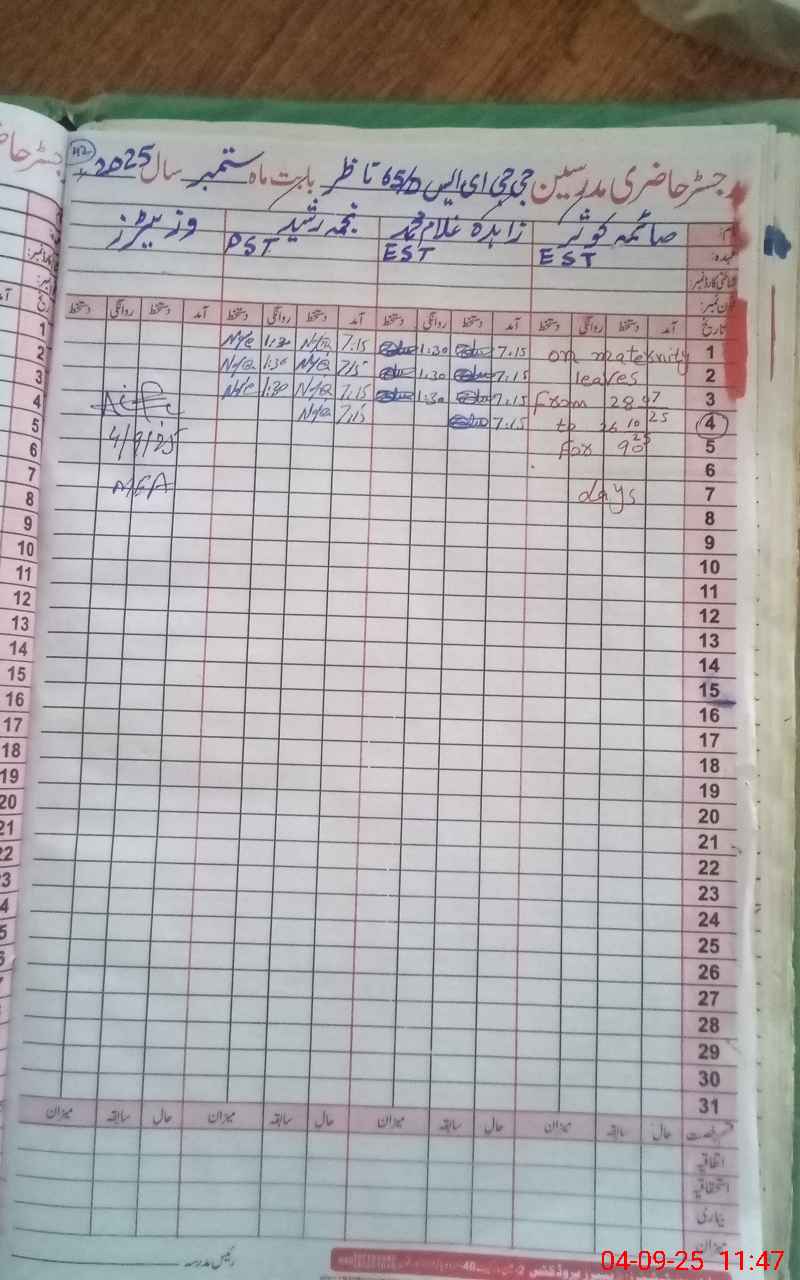 42
رجسٹر حاضری مدرسین جی جی ای ایس 65/D تا ظر بابت ماہ ستمبر سال 2025
نام: صائمہ کوثر زاہدہ غلام محمد نجمہ رشید وزیٹرز
عہدہ: EST EST PST
شناختی کارڈ نمبر:
فون نمبر:
تاریخ آمد دستخط روانگی دستخط آمد دستخط روانگی دستخط آمد دستخط روانگی دستخط آمد دستخط روانگی دستخط
1 on maternity 7.15 1:30 7.15 1:30
2 leaves 7.15 1:30 7.15 1:30
3 from 28 07 7.15 1:30 7.15 1:30
4 to 26 10 25 7:15 7.15
5 for 90 4/9/25
6
7 days MEA
8
9
10
11
12
13
14
15
16
17
18
19
20
21
22
23
24
25
26
27
28
29
30
31
رخصت حال سابقہ میزان حال سابقہ میزان حال سابقہ میزان حال سابقہ میزان
اتفاقیہ
استحقاقیہ
بیماری
میزان
رئیس مدرسہ
04-09-25 11:47